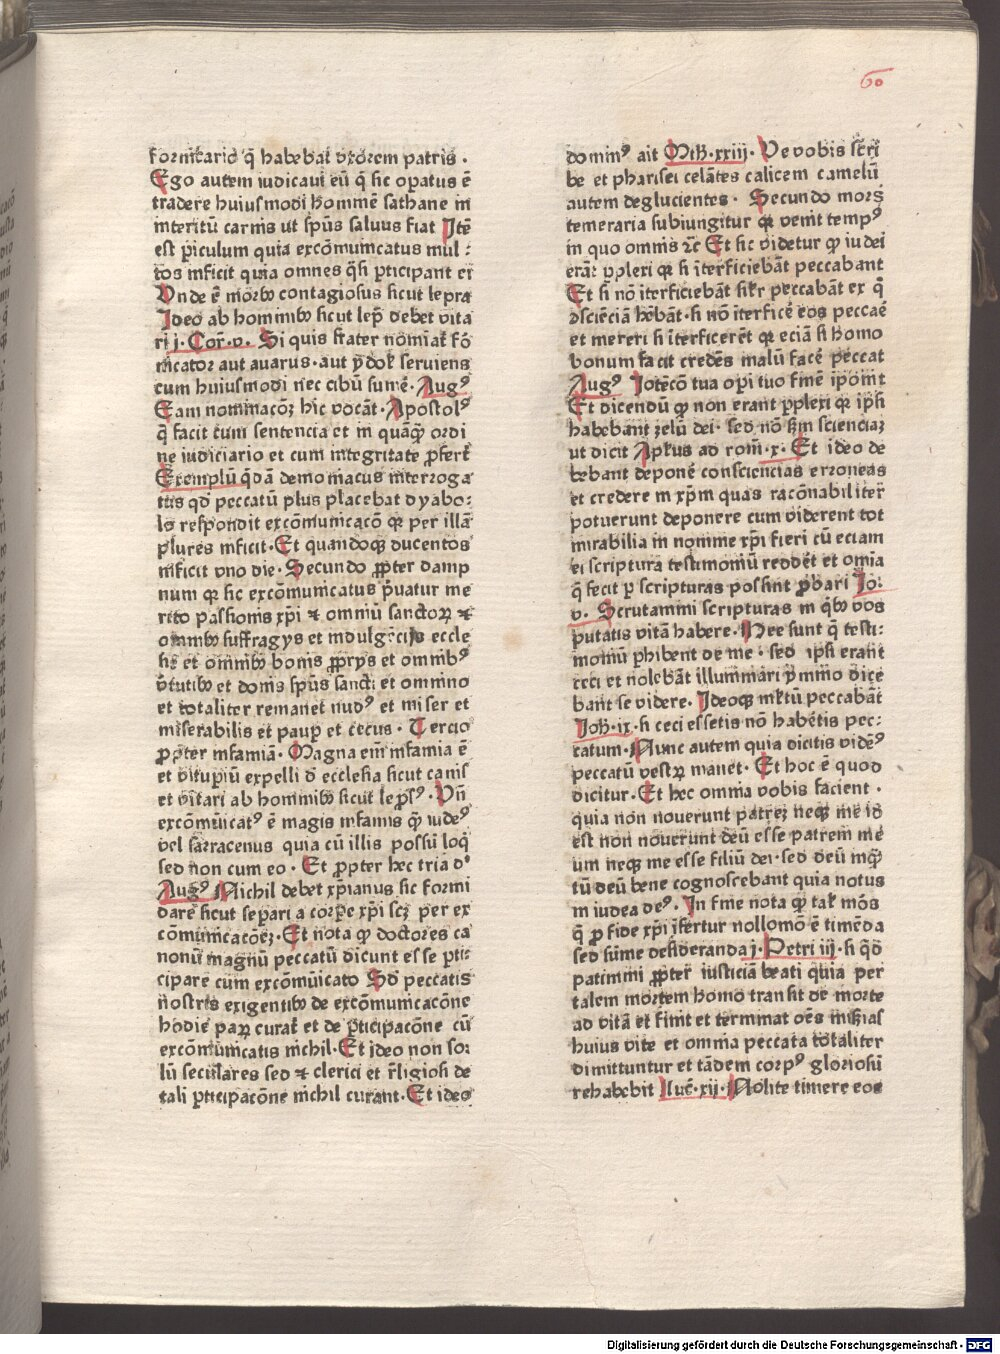 60
fornicario q̃ habebat vxorem patris ·
Ego autem iudicaui eũ q̃ sic opatus ē
tradere huiusmodi hominem sathane in
interitũ carnis ut spũs saluus fiat Itē
est p̱iculum quia excōmunicatus mul⸗
tos inficit quia omnes q̃si p̱ticipant ei
Vnde ē morbo contagiosus sicut lepra
Ideo ab hominibꝫ sicut lep̄ debet vita
ri j · Cor̄ · v · Si quis frater nomiat᷑ fō
nicator aut auarus · aut ydol᷑ seruiens
cum huiusmodi nec cibũ sumē · Augꝰ
Eam nominacōꝫ hic vocāt · Apostolꝰ
q̃ facit cum sentencia et in quāqꝫ ordi
ne iudiciario et cum integritate ꝓfert᷑
Exemplũ qdā demoniacus interroga
tus qd peccatũ plus placebat dyabo⸗
lo respondit excōmunicacō qꝛ per illā
plures inficit · Et quandoqꝫ ducentos
inficit vno die · Secundo ꝓpter damp
num qꝛ sic excōmunicatus p̱uatur me
rito passionis xp̄i ⁊ omniũ sanctoꝝ ⁊
omnibꝫ suffragijs et indulgēcijs eccle
sie et omnibꝫ bonis ꝓprijs et omnibꝰ
v̄tutibꝫ et donis spũs sancti et omnino
et totaliter remanet nudꝰ et miser et
miserabilis et paup̱ et cecus · Tercio
ꝓpter infamiā · Magna eni infamia ē
et vitup̱iũ expelli d̄ ecclesia sicut canis
et vitari ab hominibꝫ sicut lep̱sꝰ · Vñ
excōmũicatꝰ ē magis infamis q̃ iudeꝰ
vel sarracenus quia cũ illis possũ loq̇
sed non cum eo · Et ꝓpter hec tria dꝰ
Augꝰ Nichil debet xp̄ianus sic formi
dare sicut separi a corpe xp̄i scꝫ per ex
cōmunicacōeꝫ · Et nota qꝙ doctores ca
nonũ magnũ peccatũ dicunt esse p̱ti⸗
cipare cum excōmũicato Sꝫ peccatis
nostris exigentibꝫ de excōmunicacōne
hodie paꝝ curat᷑ et de p̱ticipacōne cũ
excōmunicatis nichil · Et ideo non so⸗
lũ seculares sed ⁊ clerici et r̄ligiosi de
tali p̱ticipacōne nichil curant · Et ideo
dominꝰ ait Mtħ · xxiij · Ve vobis scri
be et pharisei celātes calicem camelũ
autem deglucientes · Secundo mors
temeraria subiungitur qꝛ venit tempꝰ
in quo omnis ⁊c̄ Et sic videtur ꝙ iudei
erāt ꝑplexi qꝛ si īterficiebāt peccabant
Et si nō īterficiebāt sil̄r peccabāt ex q̃
ꝯsciēciā hēbāt · si nō īterficē eos peccaē
et mereri si īterficerēt qꝛ eciā si homo
bonum facit credēs malũ facē peccat
Augꝰ Iotecō tua opi tuo finē ip̱onit
Et dicendũ ꝙ non erant ꝑplexi qꝛ ip̄i
habebant zelũ dei · sed nō ẜm scienciaꝫ
ut dicit Apl̄us ad rom̄ · x · Et ideo de
bebant deponē consciencias erroneas
et credere in xp̄m quas racōnabiliter
potuerunt deponere cum viderent tot
mirabilia in nomine xp̄i fieri cũ eciam
ei scriptura testimoniũ reddēt et omīa
q̃ fecit p̱ scripturas possint ꝓbari Jo⸗
v · Scrutamini scripturas in q̇bꝫ vos
putatis vitā habere · Hee sunt q̃ testi⸗
moniũ p̱hibent de me · sed ipsi erant
ceci et nolebāt illuminari ymmo dice
bant se videre · Ideoqꝫ ml̄tũ peccabāt
Joħ · ix · si ceci essetis nō habētis pec⸗
catum · Nunc autem quia dicitis vidēꝰ
peccatũ vestꝝ manet · Et hoc ē quod
dicitur · Et hec omnia vobis facient ·
quia non nouerunt patreꝫ neqꝫ me id
est non nouerunt deũ esse patrem me
um neqꝫ me esse filiũ dei · sed deũ inq̃
tũ deũ bene cognoscebant quia notus
in iudea deꝰ · In fine nota ꝙ tal᷑ mōs
q̃ ꝓ fide xp̄i īfertur nollomō ē timēda
sed sũme desideranda j · Petri iij · si q̇d
patimini ꝓpter iusticiā beati quia per
talem mortem homo transit de morte
ad vitā et finit et terminat oēs mis̄ias
huius vite et omnia peccata totaliter
dimittuntur et tādem corpꝰ gloriosũ
rehabebit Luc̄ · xij · Nolite timere eos
Digitalisierung gefördert durch die Deutsche Forschungsgemeinschaft · DFG